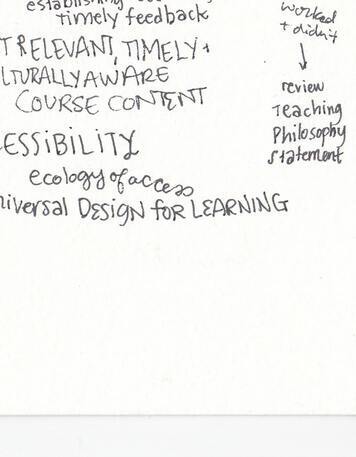 timely feedback
T RELEVANT, TIMELY +
LTURALLY AWARE
COURSE CONTENT
ESSIBILITY
ecology of access
niversal DESIGN for LEARNING
worked
+ didn't
↓
review
Teaching
Philosophy
Statement